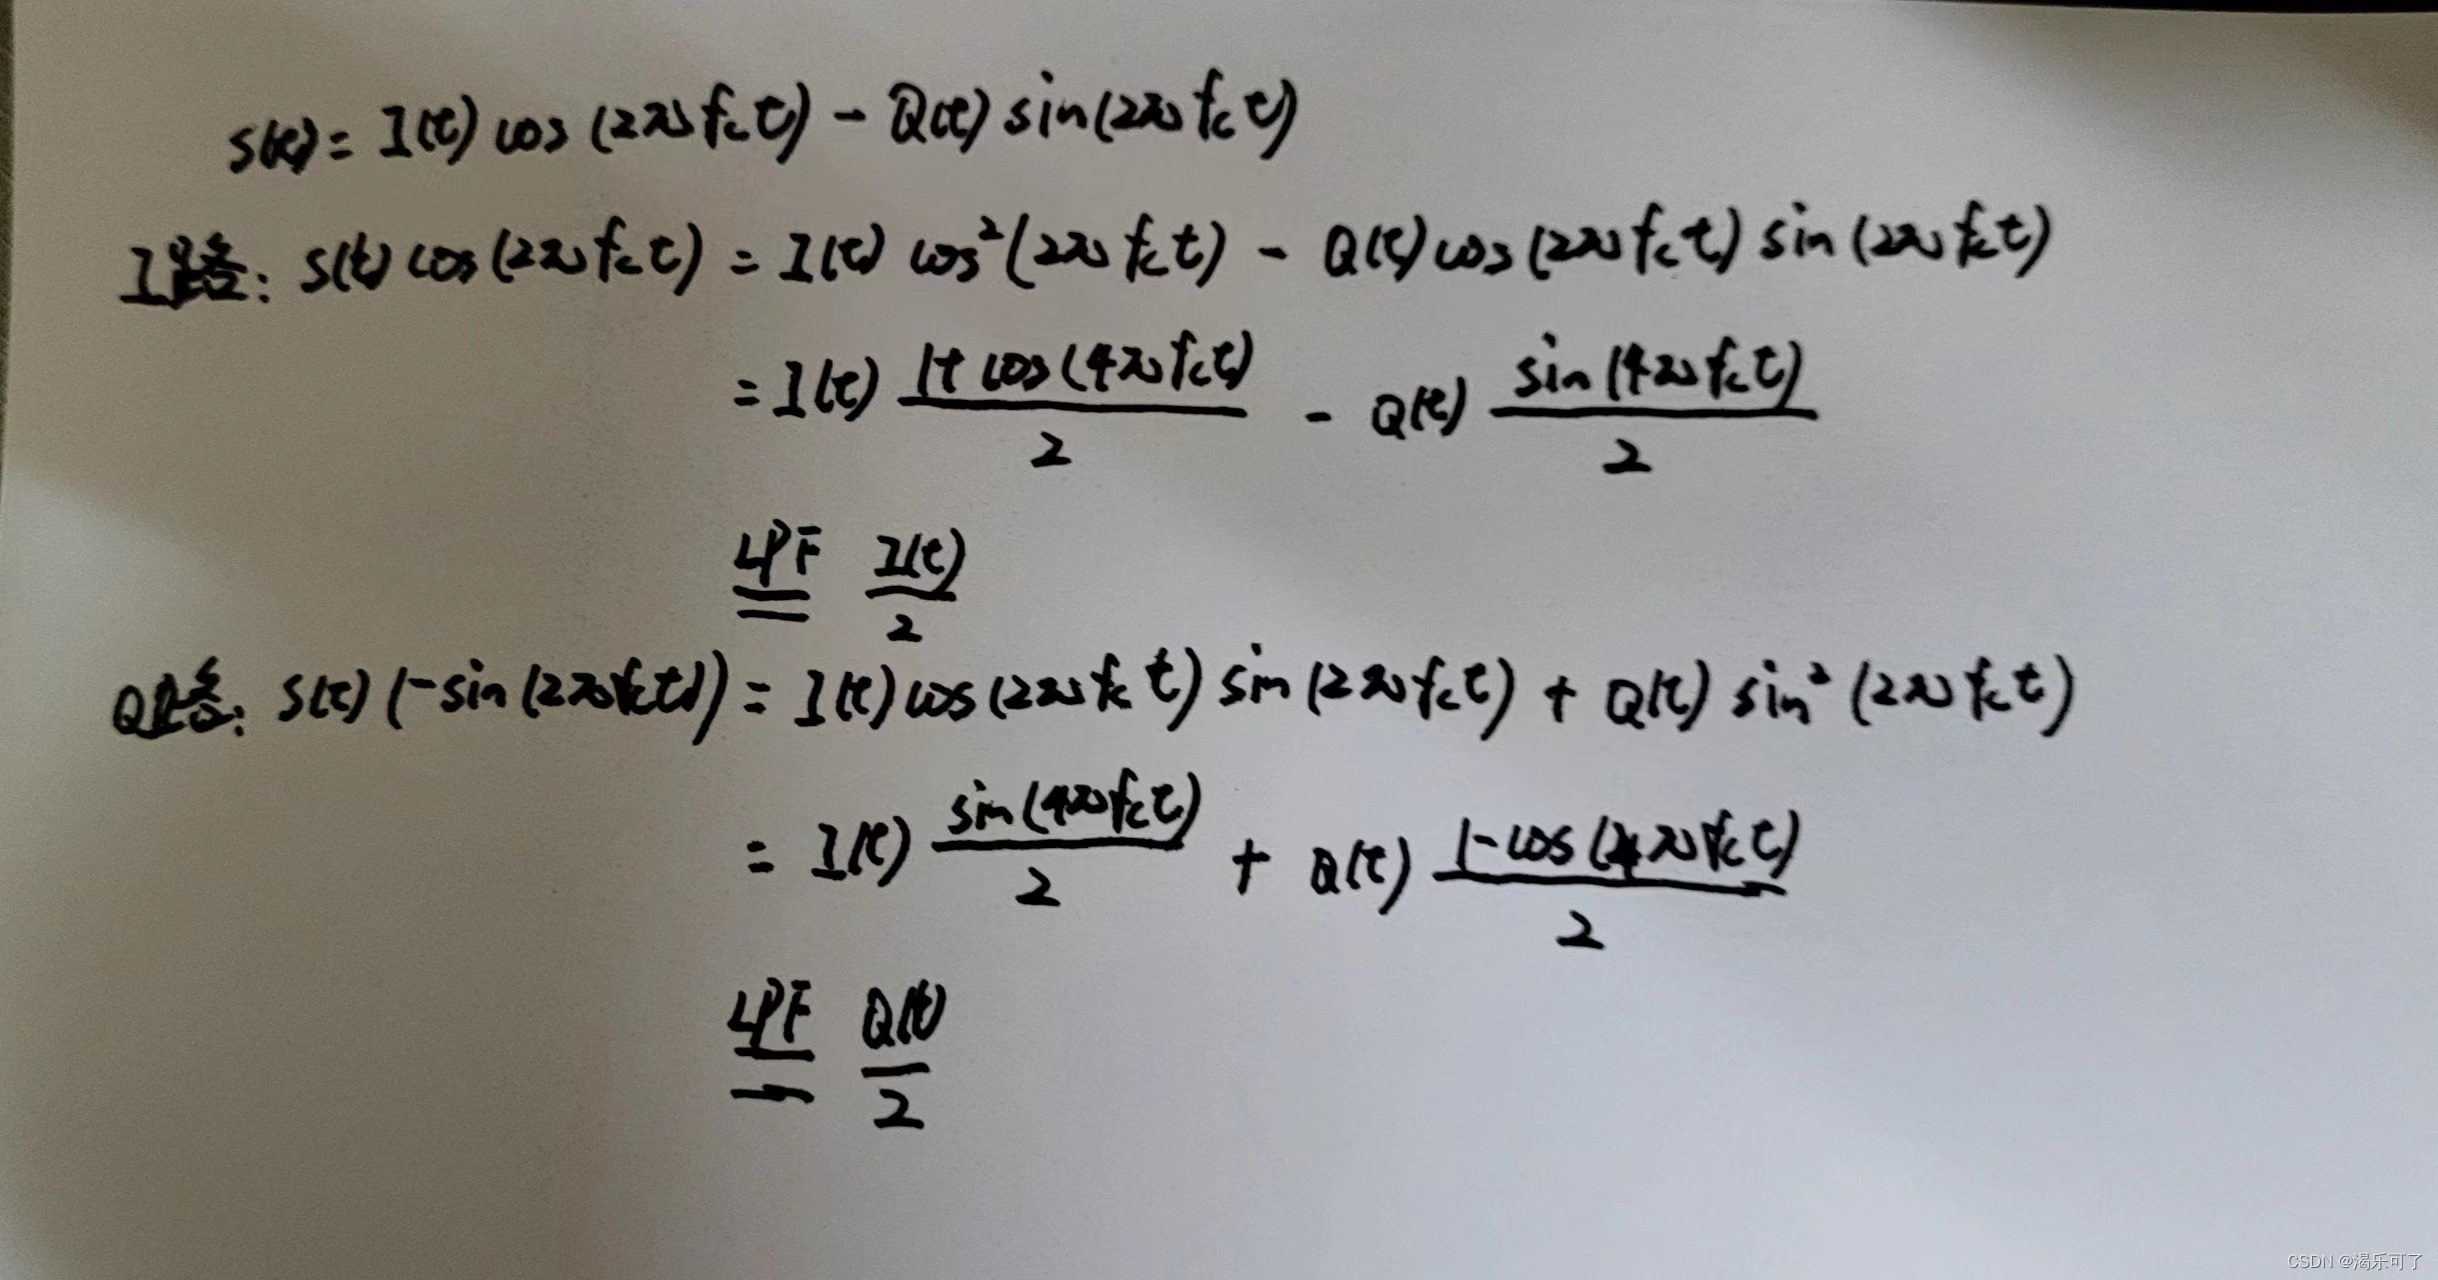 s(t) = I(t) cos(2πf_c t) - Q(t) sin(2πf_c t)
I路: s(t) cos(2πf_c t) = I(t) cos²(2πf_c t) - Q(t) cos(2πf_c t) sin(2πf_c t)
= I(t) (1+cos(4πf_c t))/2 - Q(t) sin(4πf_c t)/2
LPF = I(t)/2
Q路: s(t) (-sin(2πf_c t)) = I(t) cos(2πf_c t) sin(2πf_c t) + Q(t) sin²(2πf_c t)
= I(t) sin(4πf_c t)/2 + Q(t) (1-cos(4πf_c t))/2
LPF = Q(t)/2
CSDN @渴乐可了